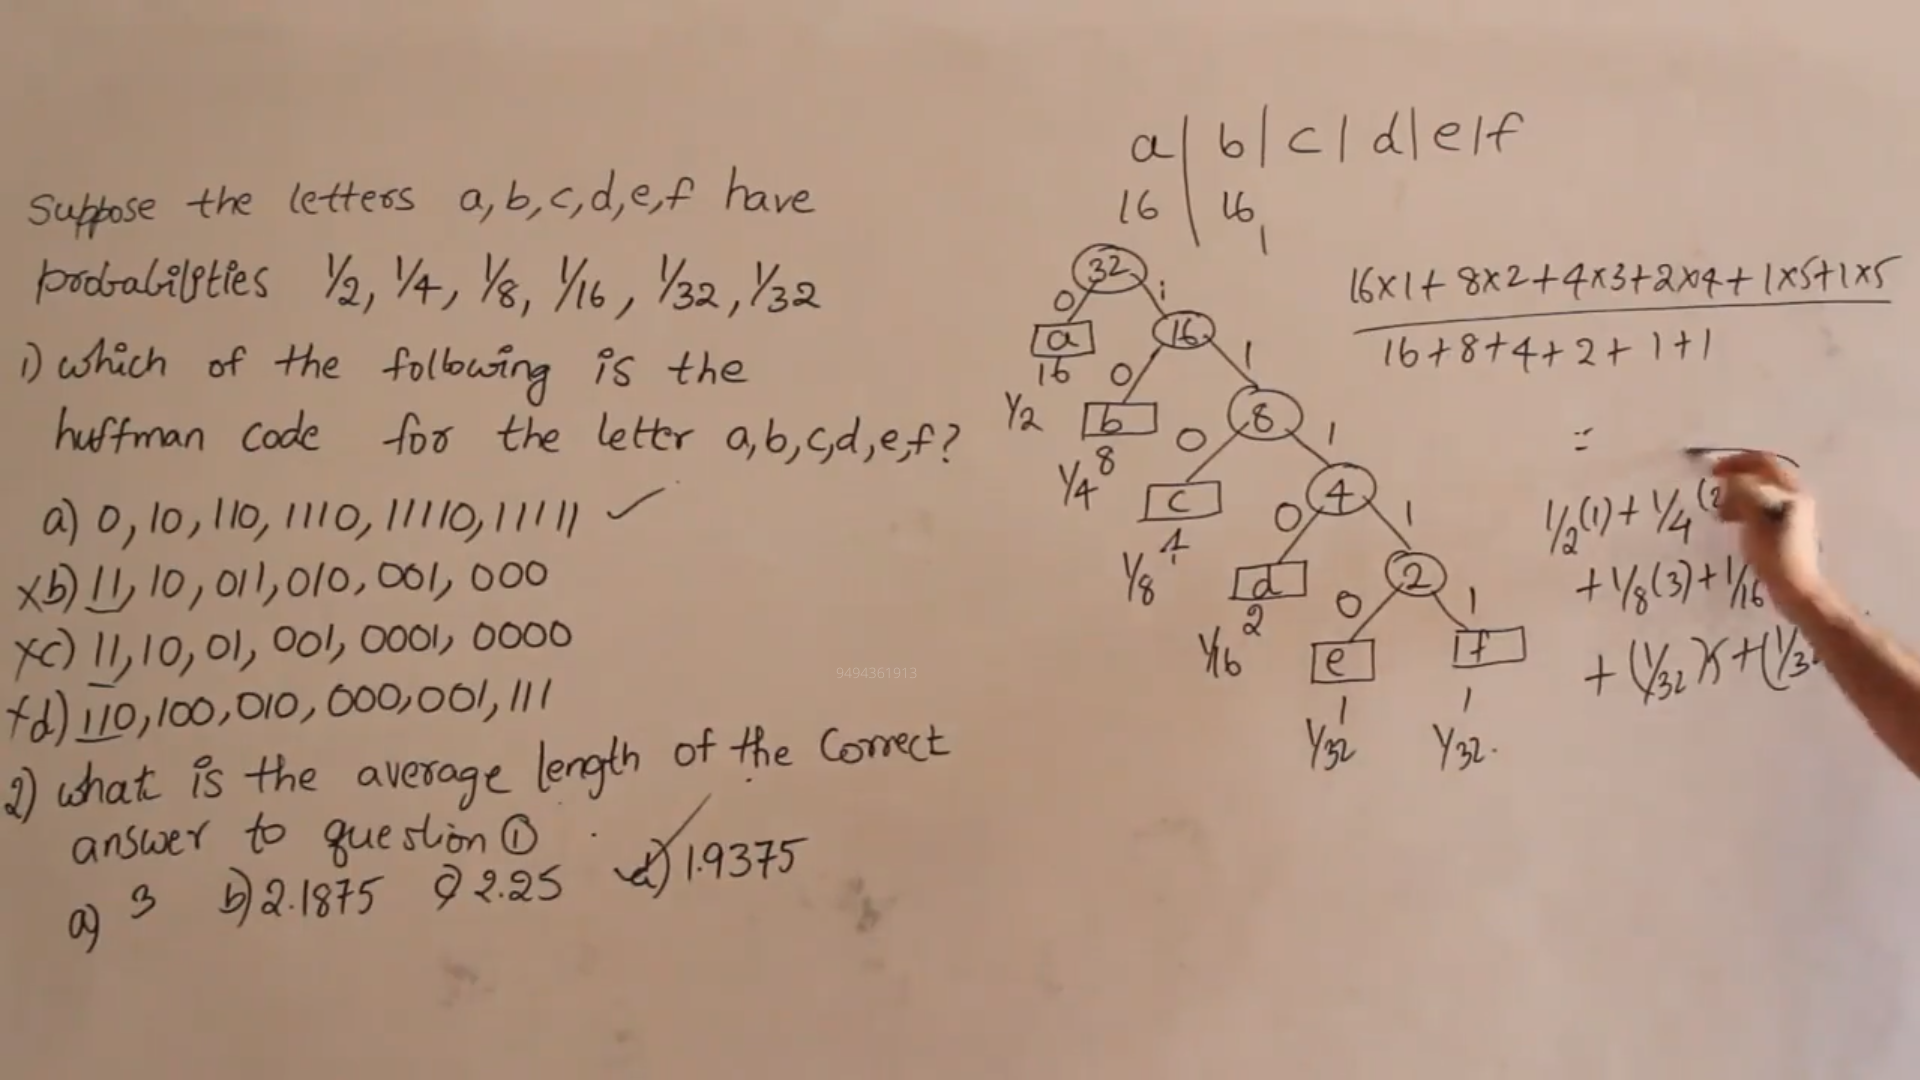 Suppose the letters a,b,c,d,e,f have
probabilities 1/2, 1/4, 1/8, 1/16, 1/32, 1/32
1) which of the following is the
huffman code for the letter a,b,c,d,e,f?
a) 0, 10, 110, 1110, 11110, 11111 ✓
xb) 11, 10, 011, 010, 001, 000
xc) 11, 10, 01, 001, 0001, 0000
xd) 110, 100, 010, 000, 001, 111
2) what is the average length of the Correct
answer to question ①
a) 3 b) 2.1875 c) 2.25 d) 1.9375
a | b | c | d | e | f
16 | 16
32
0 1
a 16
16 0 1
1/2 b 8
8 0 1
1/4 c 4
4 0 1
1/8 d 2
2 0 1
1/16 e f
1 1
1/32 1/32
16x1+ 8x2+4x3+2x4+1x5+1x5
16+8+4+2+1+1
=
1/2(1)+ 1/4(2
+ 1/8(3)+ 1/16
+ (1/32)5+(1/32
9494361913